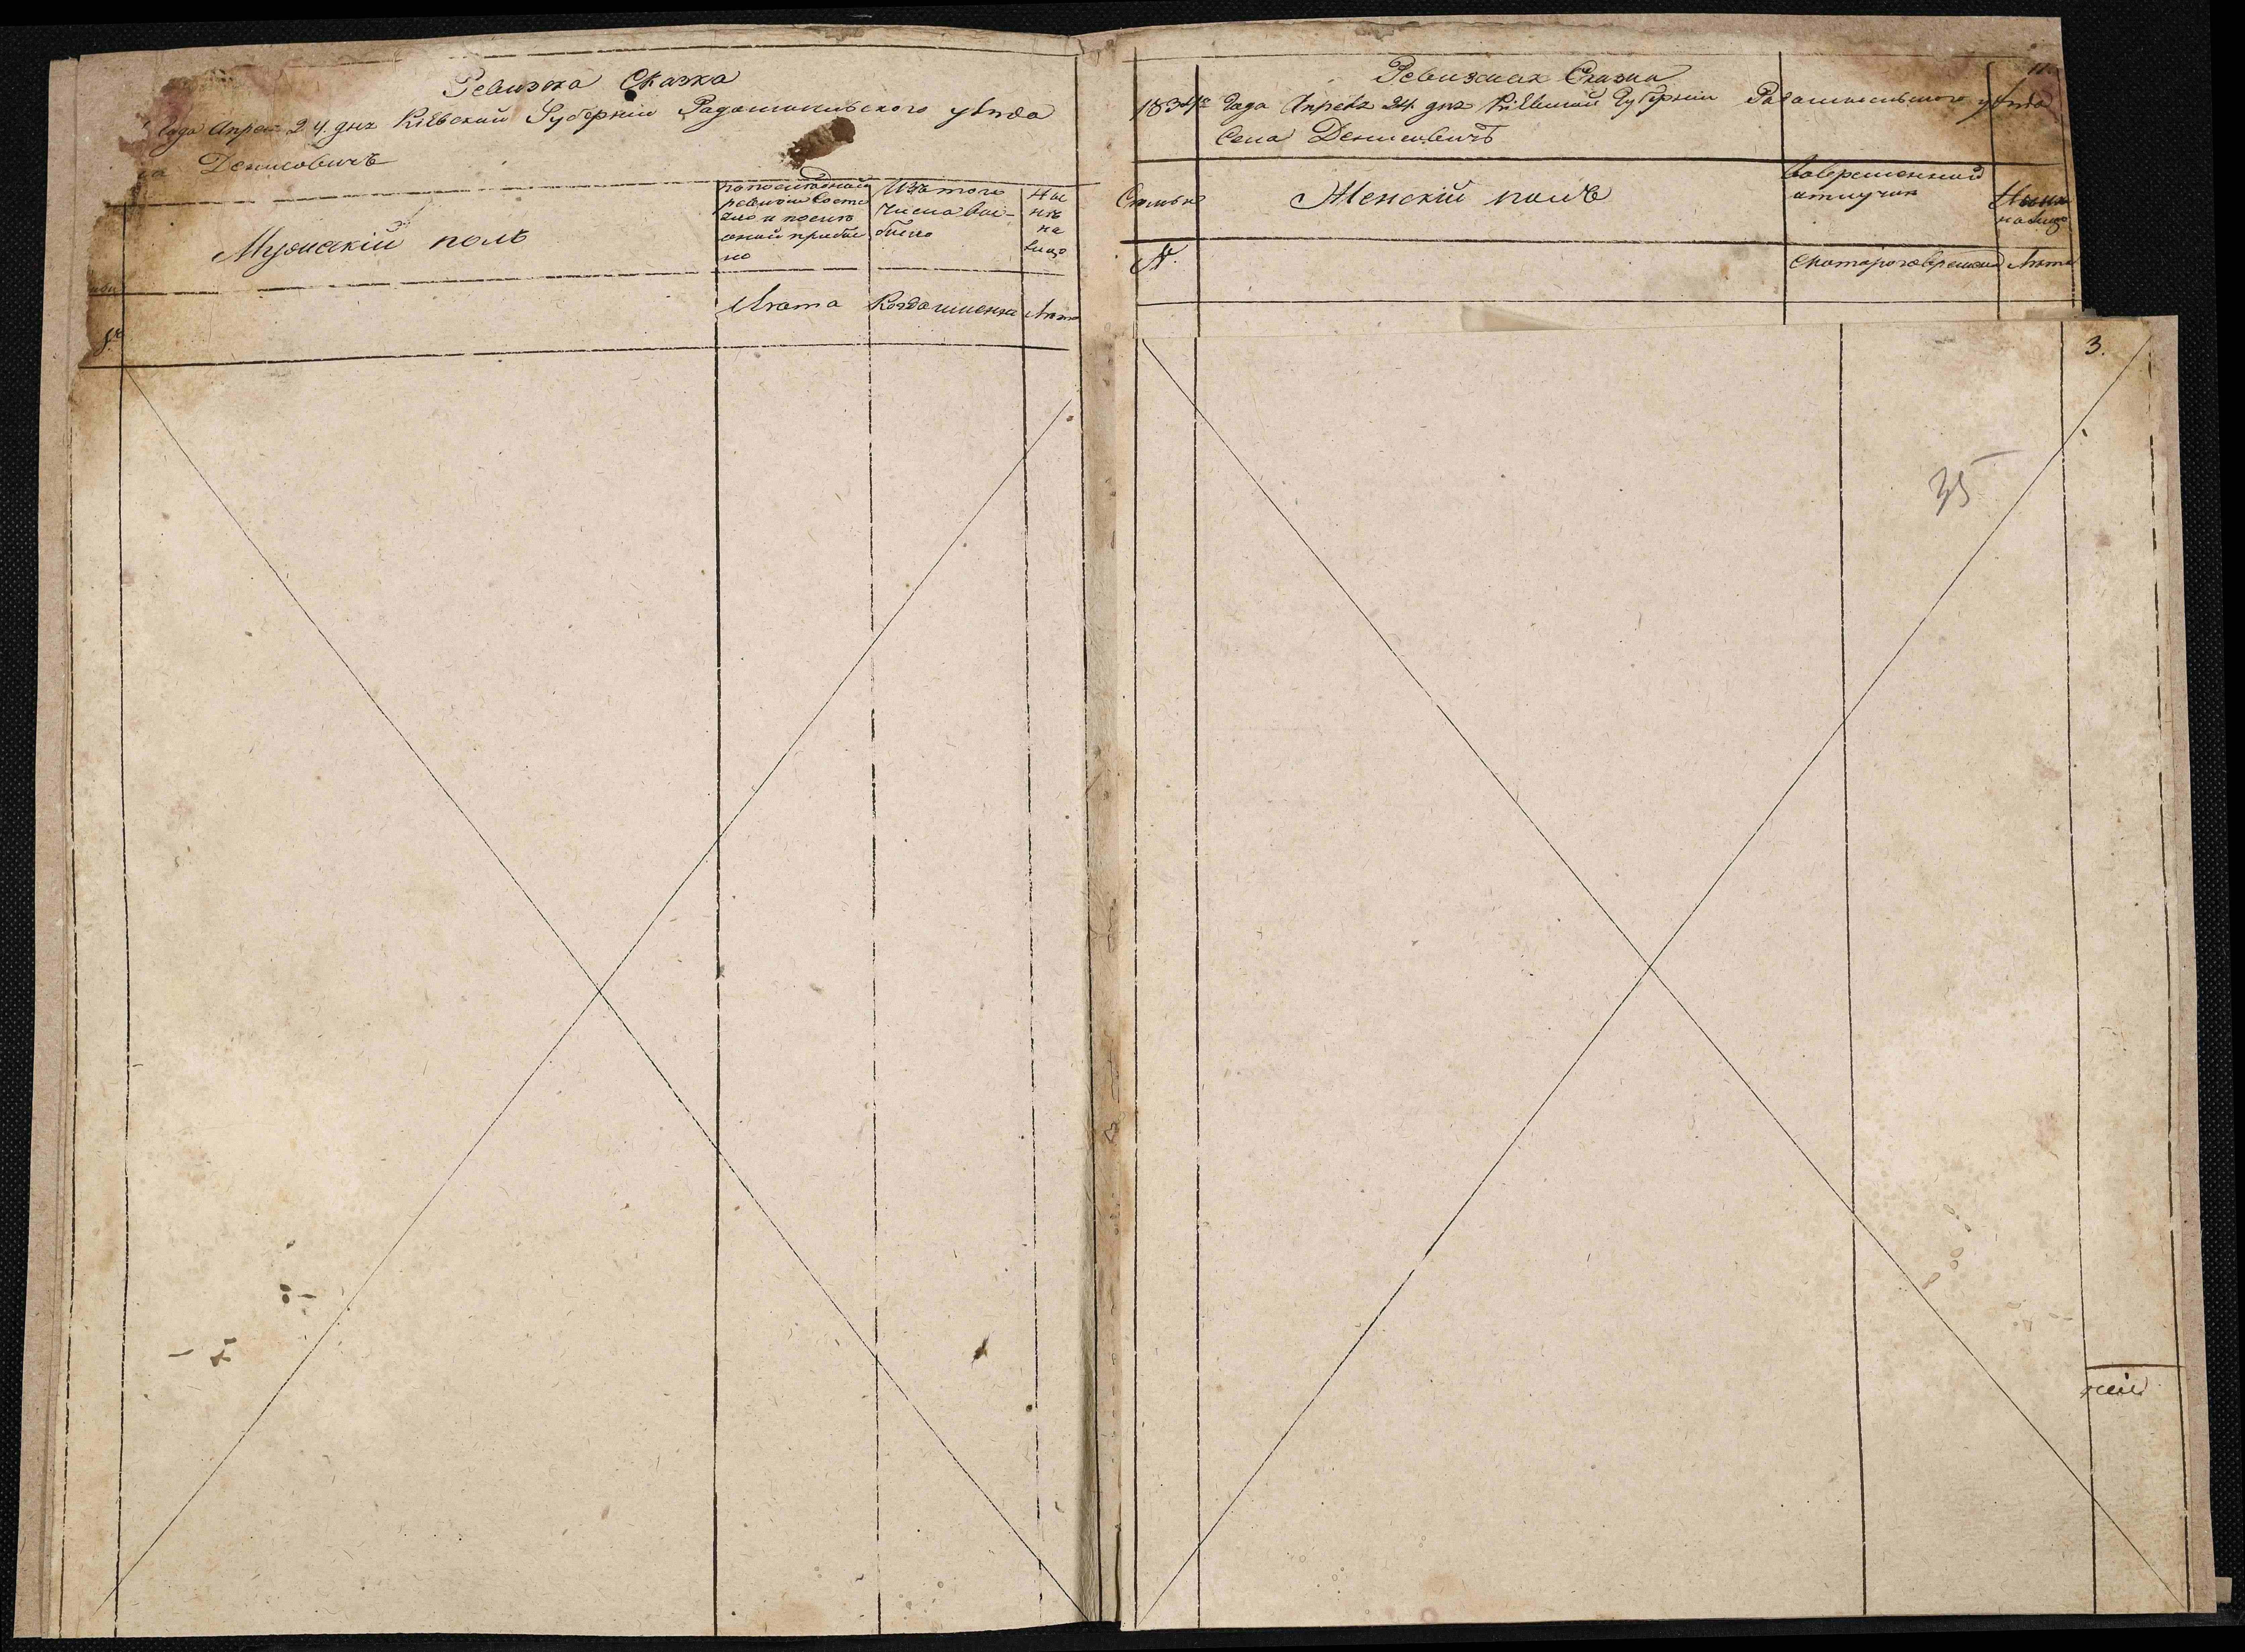 Ревизска Сказка
Года Апреля 24. дня Кіевской Губерніи Радомысльского уѣзда
Денисовичъ
Мужескій полъ
по последней
ревизіи состо
яло и после
оной прибы
ло
Изъ того
числа вы-
было
Ны
нѣ
на
лицо
Лѣта
Когда именно
Лѣта
11.
Ревизская Сказка
1834го Года Апреля 24. дня Кіевской Губерніи Радомысльского уѣзда
Села Денисовичъ
Семьи
Женскій полъ
Вовременной
отлучки
Нынѣ
налицо
№
Скоторого времени
Лѣта
3.
35